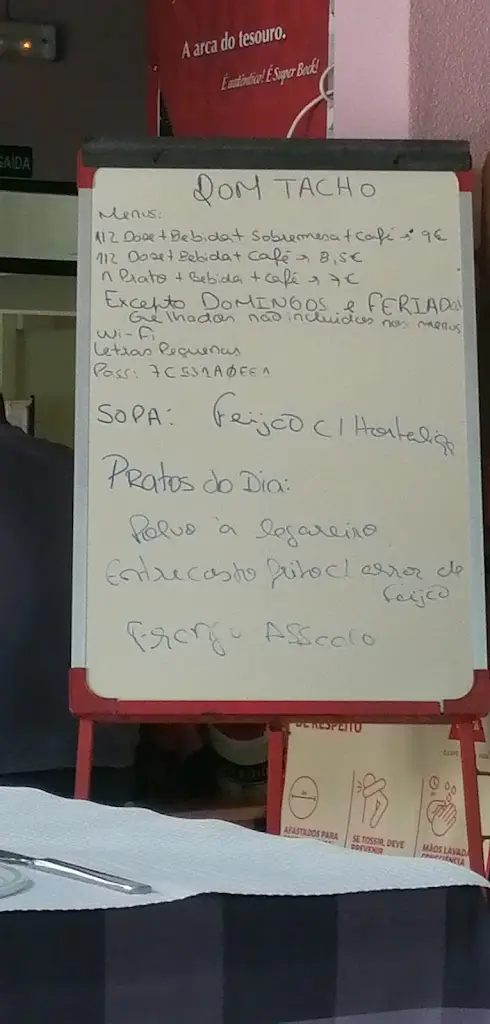 A arca do tesouro.
É autêntico! É Super Bock!
SAÍDA
DOM TACHO
Menus:
1/2 Dose + Bebida + Sobremesa + Café → 9€
1/2 Dose + Bebida + Café → 8,5€
1 Prato + Bebida + Café → 7€
Excepto DOMINGOS e FERIADOS
Grelhados não incluidos nos menus
Wi-Fi
Letras Pequenas
Pass: 7C531A0EE1
SOPA: Feijão c/ Hortaliça
Pratos do Dia:
Polvo à lagareiro
Entrecosto frito c/ arroz de
feijão
Frango Assado
DE RESPEITO
AFASTADOS PARA
SE TOSSIR, DEVE
PREVENIR
MÃOS LAVADAS
CONSCIÊNCIA